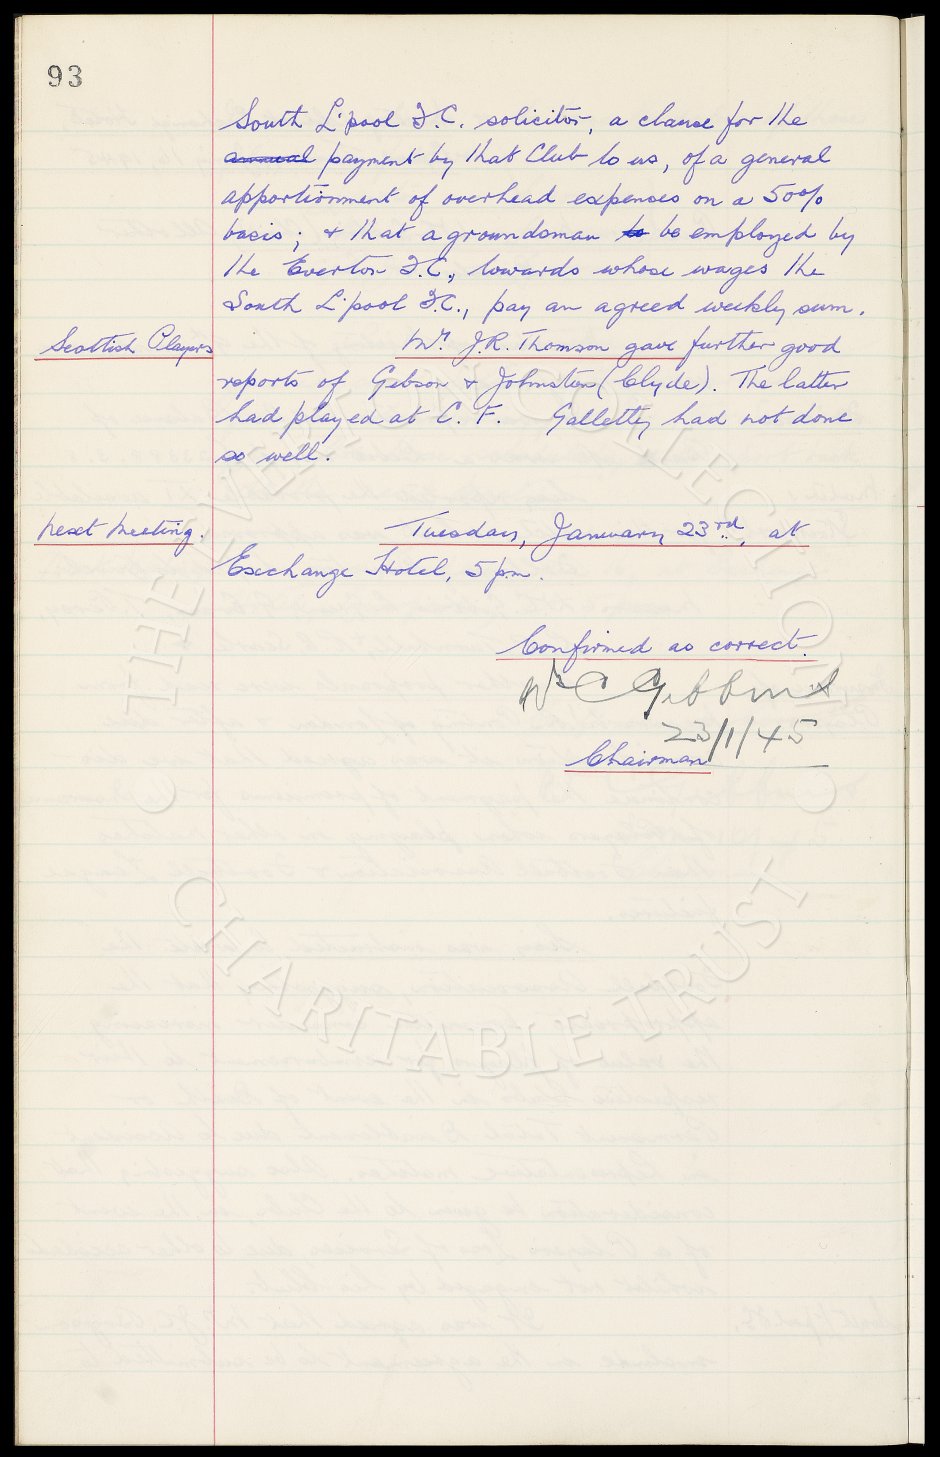 93
South L'pool F.C. solicitor, a clause for the
annual payment by that Club to us, of a general
apportionment of overhead expenses on a 50%
basis; & that a groundsman to be employed by
the Everton F.C., towards whose wages the
South L'pool F.C., pay an agreed weekly sum.
Scottish Players Mr. J.R. Thomson gave further good
reports of Gibson & Johnston (Clyde). The latter
had played at C. F. Galletty had not done
so well.
Next Meeting. Tuesday, January 23rd, at
Exchange Hotel, 5 pm.
Confirmed as correct.
Wm C Gibbins
23/1/45
Chairman
THE EVERTON COLLECTION
CHARITABLE TRUST